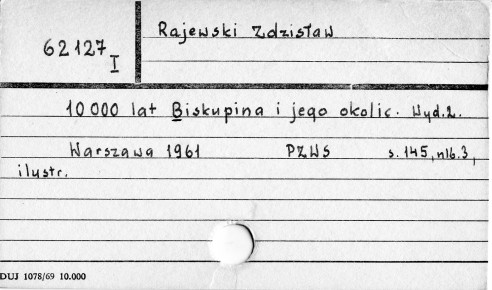 62127
I
Rajewski Zdzisław
10 000 lat Biskupina i jego okolic. Wyd. 2.
Warszawa 1961 PZWS s. 145, nlb. 3,
ilustr.
DUJ 1078/69 10.000